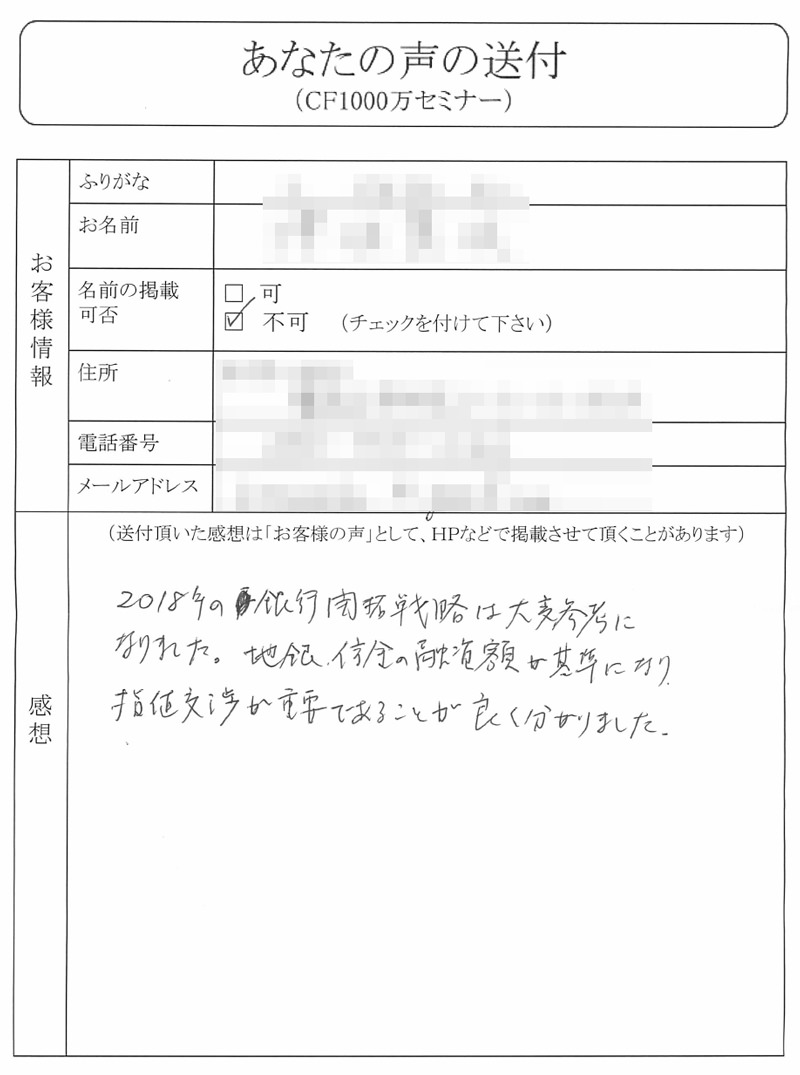 あなたの声の送付
（CF1000万セミナー）
お客様情報
ふりがな
お名前
名前の掲載
可否
可
不可 （チェックを付けて下さい）
住所
電話番号
メールアドレス
感想
（送付頂いた感想は「お客様の声」として、HPなどで掲載させて頂くことがあります）
2018年の銀行開拓戦略は大変参考に
なりました。地銀、信金の融資額が基準になり
指値交渉が重要であることが良く分かりました。